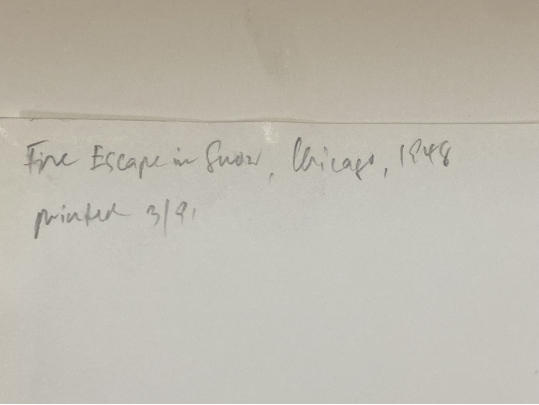 Fire Escape in Snow, Chicago, 1948
printed 3/91